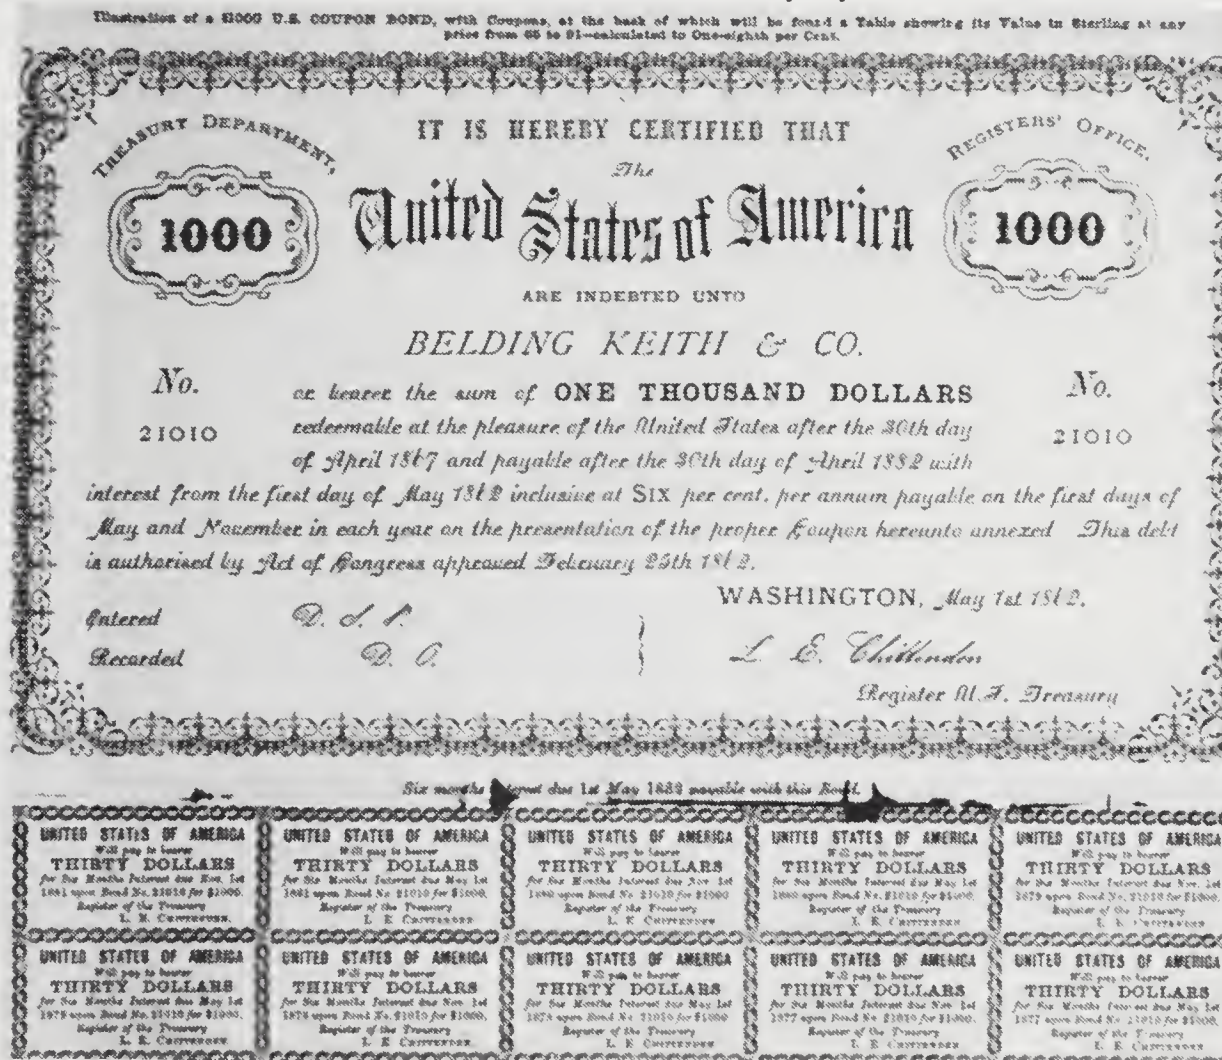 Illustration of a $1000 U.S. COUPON BOND, with Coupons, at the back of which will be found a Table showing its Value in Sterling at any
price from 65 to 91—calculated to One-eighth per Cent.
TREASURY DEPARTMENT,
IT IS HEREBY CERTIFIED THAT
REGISTERS' OFFICE.
The
1000
United States of America
1000
ARE INDEBTED UNTO
BELDING KEITH & CO.
No.
or bearer the sum of ONE THOUSAND DOLLARS
No.
21010
redeemable at the pleasure of the United States after the 30th day
21010
of April 1867 and payable after the 30th day of April 1882 with
interest from the first day of May 1862 inclusive at SIX per cent. per annum payable on the first days of
May and November in each year on the presentation of the proper Coupon hereunto annexed This debt
is authorised by Act of Congress approved February 25th 1862.
WASHINGTON, May 1st 1862.
Entered
Recorded D. O.
L. E. Chittenden
Register U.S. Treasury
Six months due 1st May 1882 payable with this Bond.
UNITED STATES OF AMERICA
Will pay to bearer
THIRTY DOLLARS
for Six Months Interest due Nov. 1st
1881 upon Bond No. 21010 for $1000.
Register of the Treasury
L. E. CHITTENDEN
UNITED STATES OF AMERICA
Will pay to bearer
THIRTY DOLLARS
for Six Months Interest due May 1st
1881 upon Bond No. 21010 for $1000.
Register of the Treasury
L. E. CHITTENDEN
UNITED STATES OF AMERICA
Will pay to bearer
THIRTY DOLLARS
for Six Months Interest due Nov. 1st
1880 upon Bond No. 21010 for $1000
Register of the Treasury
L. E. CHITTENDEN
UNITED STATES OF AMERICA
Will pay to bearer
THIRTY DOLLARS
for Six Months Interest due May 1st
1880 upon Bond No. 21010 for $1000.
Register of the Treasury
L. E. CHITTENDEN
UNITED STATES OF AMERICA
Will pay to bearer
THIRTY DOLLARS
for Six Months Interest due Nov. 1st
1879 upon Bond No. 21010 for $1000.
Register of the Treasury
L. E. CHITTENDEN
UNITED STATES OF AMERICA
Will pay to bearer
THIRTY DOLLARS
for Six Months Interest due May 1st
upon Bond No. 21010 for $1000.
Register of the Treasury
L. E. CHITTENDEN
UNITED STATES OF AMERICA
Will pay to bearer
THIRTY DOLLARS
for Six Months Interest due Nov. 1st
1878 upon Bond No. 21010 for $1000.
Register of the Treasury
L. E. CHITTENDEN
UNITED STATES OF AMERICA
Will pay to bearer
THIRTY DOLLARS
for Six Months Interest due May 1st
1878 upon Bond No. 21010 for $1000
Register of the Treasury
L. E. CHITTENDEN
UNITED STATES OF AMERICA
Will pay to bearer
THIRTY DOLLARS
for Six Months Interest due Nov. 1st
1877 upon Bond No. 21010 for $1000.
Register of the Treasury
L. E. CHITTENDEN
UNITED STATES OF AMERICA
Will pay to bearer
THIRTY DOLLARS
for Six Months Interest due May 1st
1877 upon Bond No. 21010 for $1000.
Register of the Treasury
L. E. CHITTENDEN